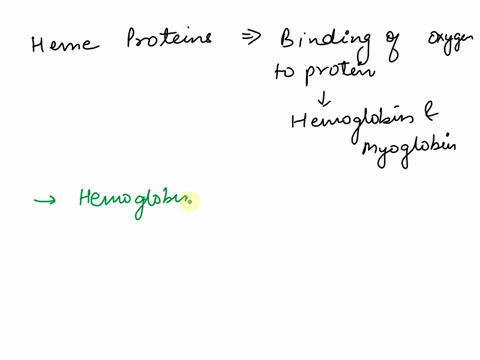 Heme Proteins ⇒ Binding of oxygen
to protein
↓
Hemoglobin &
Myoglobin
→ Hemoglobin